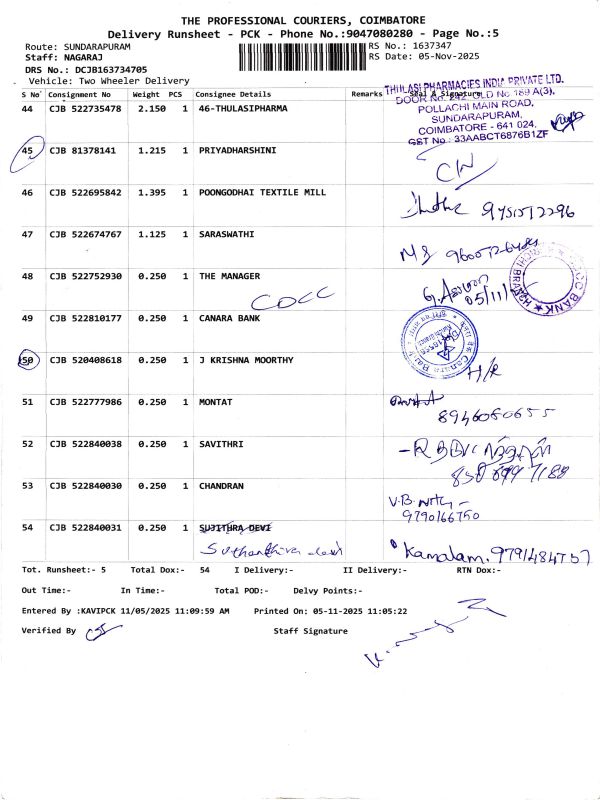 THE PROFESSIONAL COURIERS, COIMBATORE
Delivery Runsheet - PCK - Phone No.:9047080280 - Page No.:5
Route: SUNDARAPURAM RS No.: 1637347
Staff: NAGARAJ RS Date: 05-Nov-2025
DRS No.: DCJB163734705
Vehicle: Two Wheeler Delivery
S No Consignment No Weight PCS Consignee Details Remarks Seal & Signature
THULASI PHARMACIES INDIA PRIVATE LTD.
44 CJB 522735478 2.150 1 46-THULASIPHARMA
POLLACHI MAIN ROAD,
SUNDARAPURAM,
COIMBATORE - 641 024.
GST No : 33AABCT6876B1ZF
45 CJB 81378141 1.215 1 PRIYADHARSHINI
46 CJB 522695842 1.395 1 POONGODHAI TEXTILE MILL
47 CJB 522674767 1.125 1 SARASWATHI
48 CJB 522752930 0.250 1 THE MANAGER
CDCC
05/11/25
49 CJB 522810177 0.250 1 CANARA BANK
50 CJB 520408618 0.250 1 J KRISHNA MOORTHY
51 CJB 522777986 0.250 1 MONTAT
8946080655
52 CJB 522840038 0.250 1 SAVITHRI
53 CJB 522840030 0.250 1 CHANDRAN
9790166750
54 CJB 522840031 0.250 1 SUJITHRA DEVI
Kamalam. 9791484757
Tot. Runsheet:- 5 Total Dox:- 54 I Delivery:- II Delivery:- RTN Dox:-
Out Time:- In Time:- Total POD:- Delvy Points:-
Entered By :KAVIPCK 11/05/2025 11:09:59 AM Printed On: 05-11-2025 11:05:22
Verified By Staff Signature